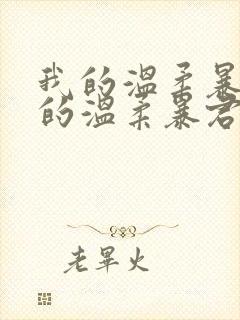 我的温柔暴
的温柔暴君
老畢火